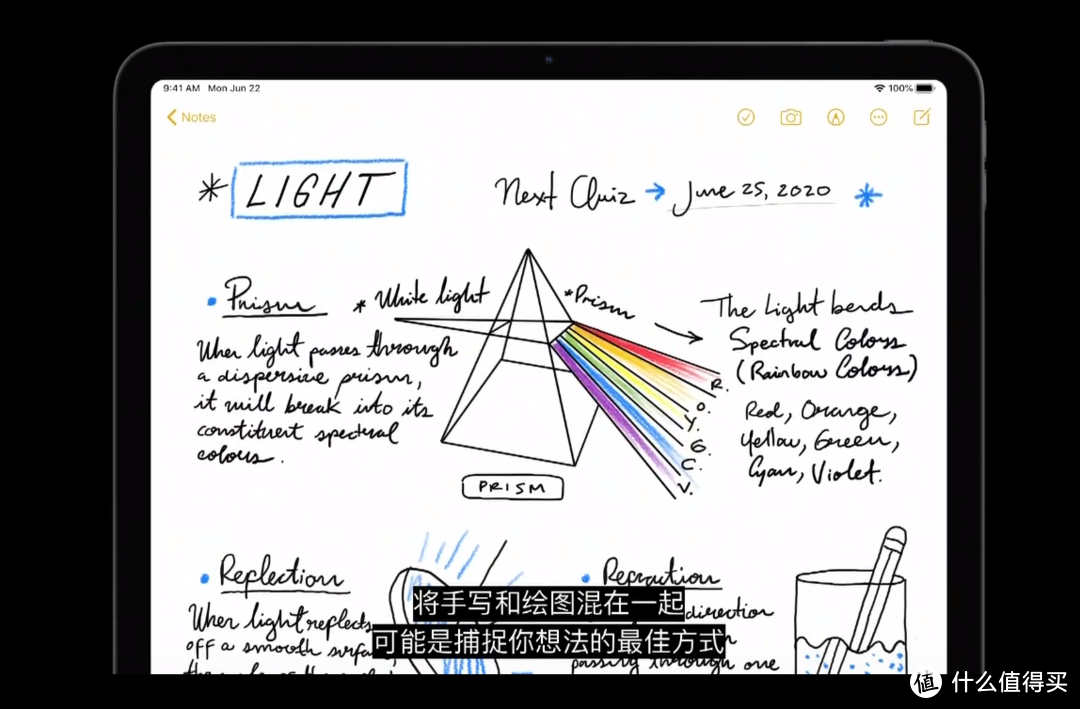 9:41 AM Mon Jun 22
100%
Notes
* LIGHT
Next Quiz → June 25, 2020 *
• Prism
When light passes through
a dispersive prism,
it will break into its
constituent spectral
colours.
* White light
*Prism
R.
O.
Y.
G.
C.
V.
PRISM
The Light bends
Spectral Colors
(Rainbow Colors)
Red, Orange,
Yellow, Green,
Cyan, Violet.
• Reflection
When light reflects
off a smooth
• Refraction
direction
passing through one
将手写和绘图混在一起
可能是捕捉你想法的最佳方式
值 什么值得买